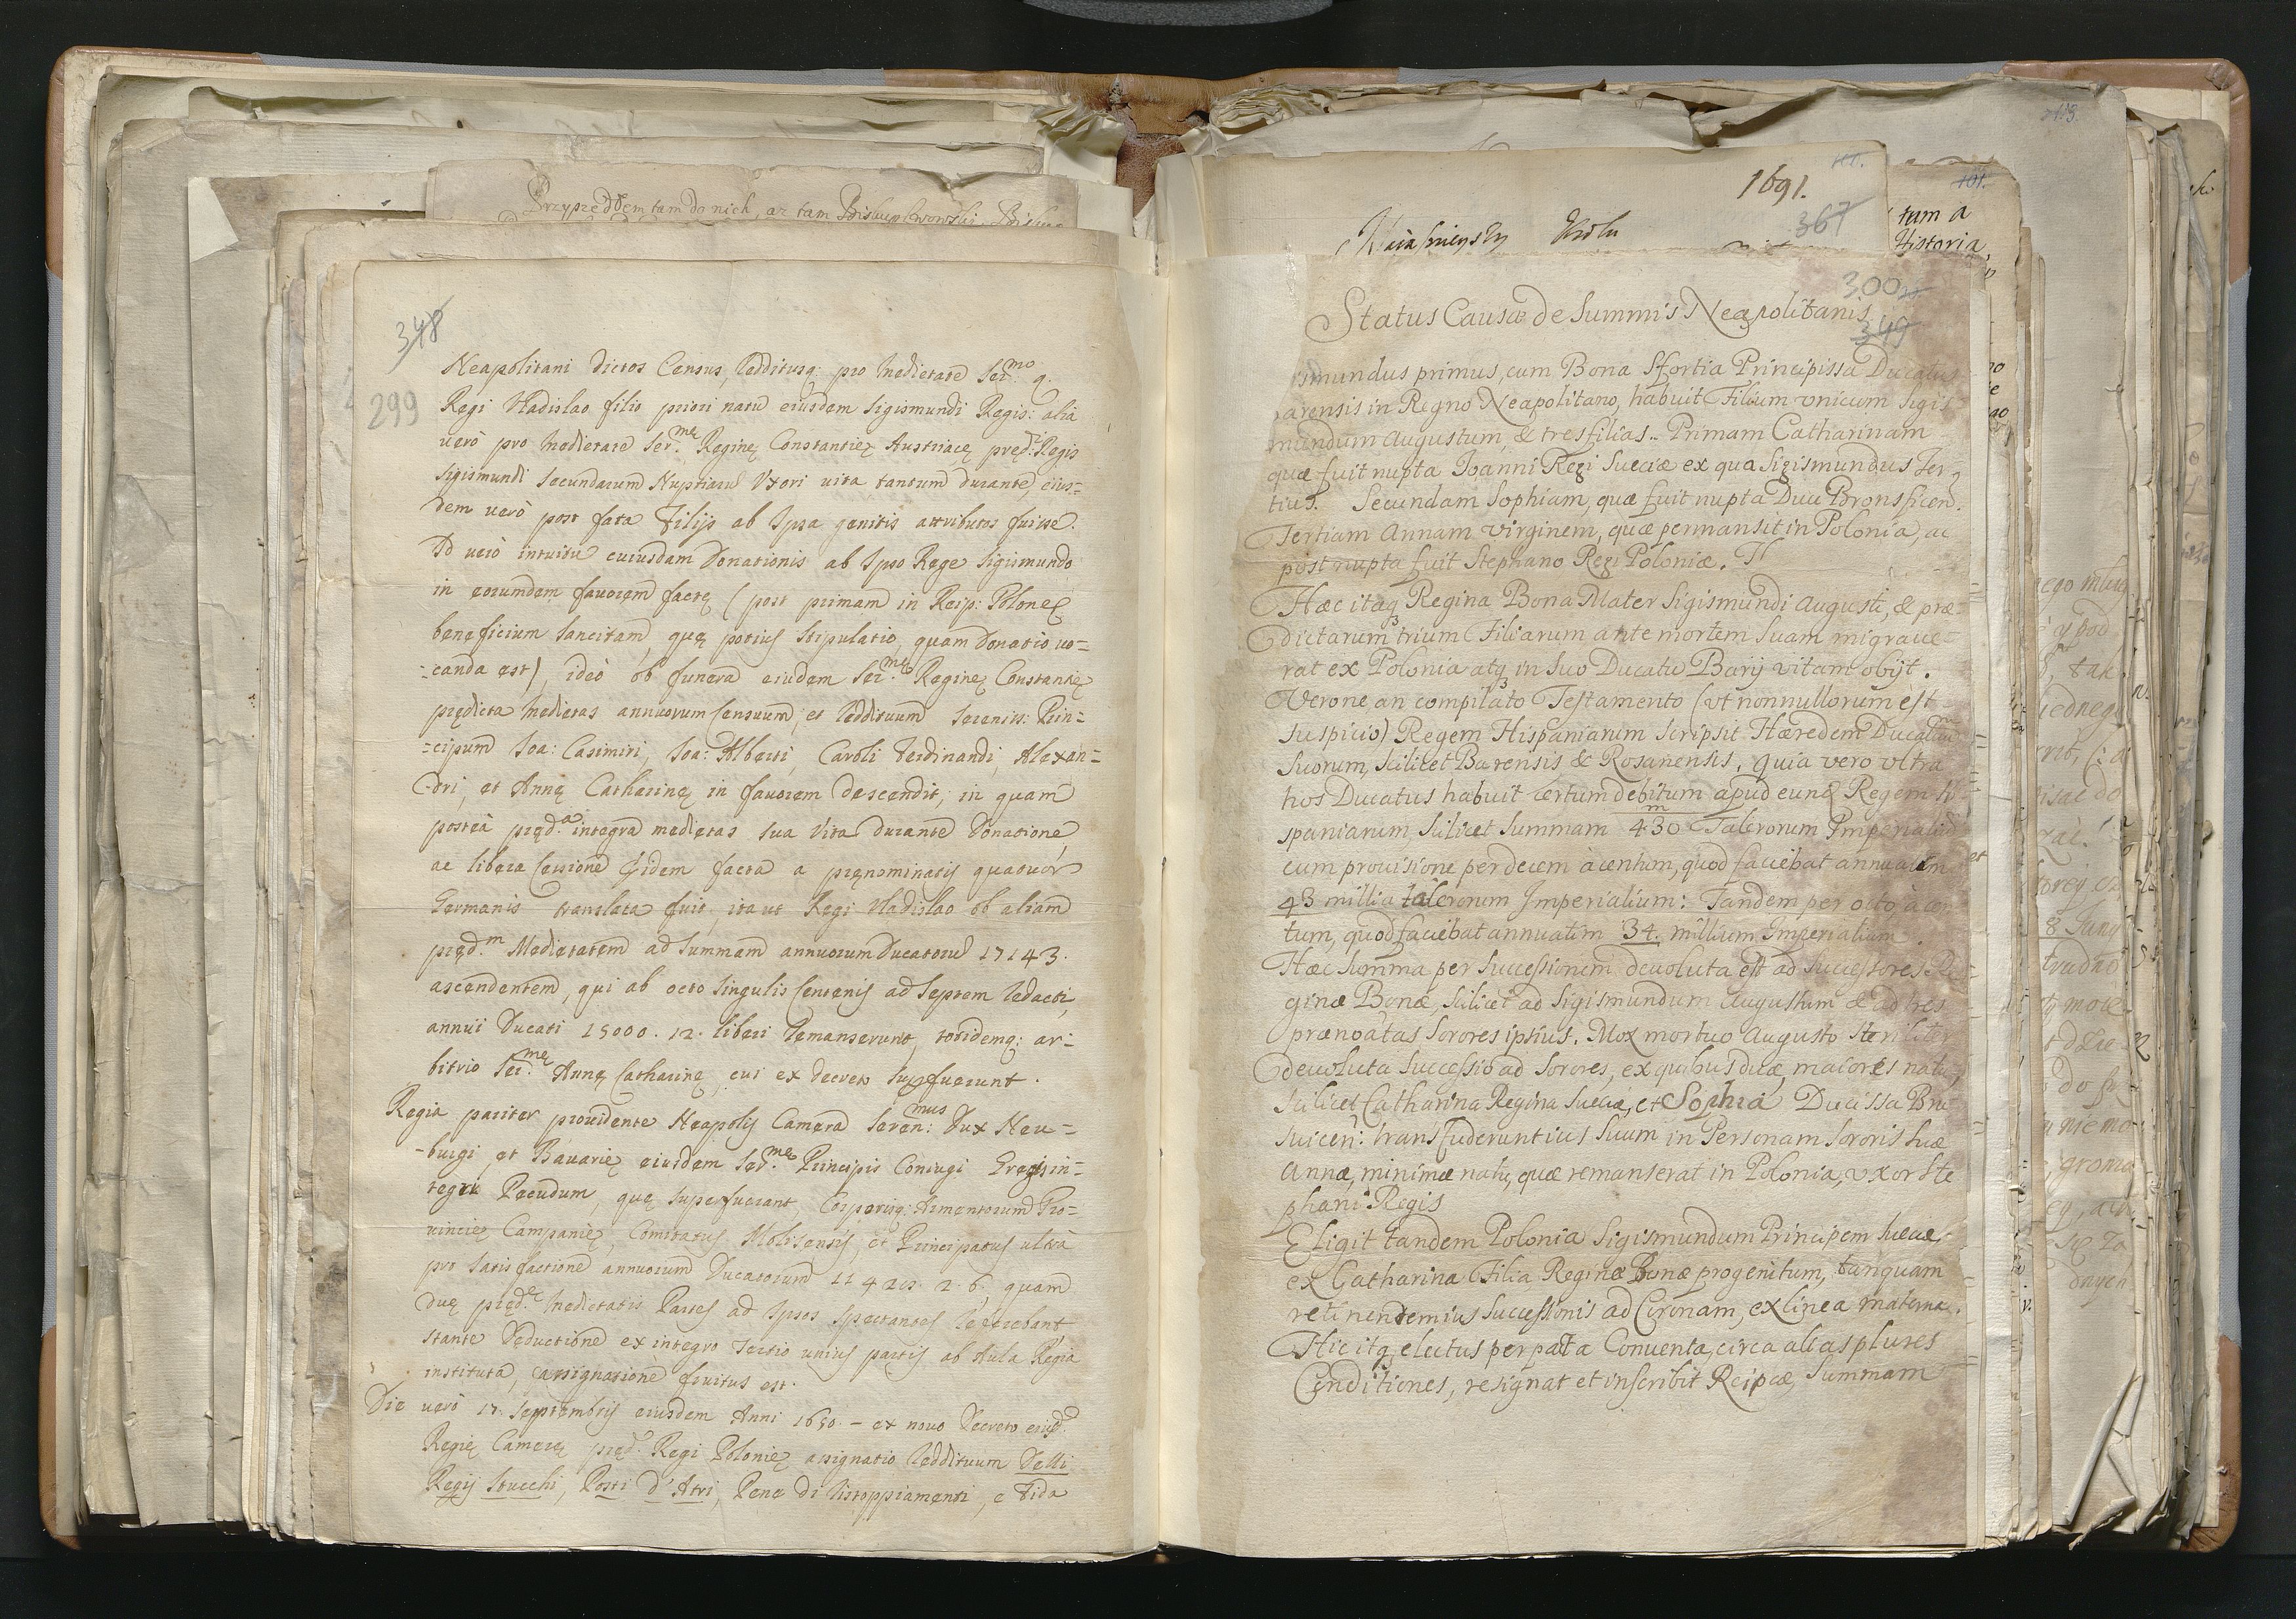 Przyszedłem tam do nich, az tam Biskup Lwowski, Biskup
348
299
Neapolitani dictos Census, Redditusq: pro medietate Ser:mo q.
Regi Vladislao filio priori natu eiusdem Sigismundi Regis: alia
verò pro medietate Ser:mę Reginę Constantię Austriacę pręd: Regis
Sigismundi Secundarum Nuptiarũ Uxori vita tantum durante, eius=
dem verò post fata Filijs ab Ipsa genitis attributos fuisse.
Id verò intuitu cuiusdam Donationis ab Ipso Rege Sigismundo
in eorumdem favorem factę (post primam in Reip: Polonę
beneficium Sancitam, quę potius Stipulatio, quam Donatio vo=
=canda est), ideò ob funera eiusdem Ser:mę Reginę Constantię
prędicta medietas annuorum Censuum, et Reddituum Sereniss: Prin=
=cipum Ioa: Casimiri, Ioa: Alberti, Caroli Ferdinandi, Alexan=
dri, et Annę Catharinę in favorem descendit, in quam
posteà pręd:a integra medietas sua Vita durante Donatione,
ac libera Cessione Eidem facta a pręnominatis quatuor
Germanis translata fuit, ita ut Regi Vladislao ob aliam
pręd:m Medietatem ad Summam annuorum Ducatorũ 17143.
ascendentem, qui ab octo Singulis Centenis ad Septem redacti,
annui Ducati 15000. 12. liberi remanserunt, totidemq: ar=
bitrio Ser:mę Annę Catharinę, cui ex decreto Suppfuerunt.
Regia pariter providente Neapolis Camera Seren:mus Dux Neu=
=burgi, et Bavarię eiusdem Ser:mę Principis Coniugi Gregis in=
tegri Pecudum, quę superfuerant, Corporisq: Armentorum Pro=
vincię Campanię, Comitatus Molisensis, et Principatus ultra
pro satisfactione annuorum Ducatorum 11425. 2. 6., quam
duę pręd:ę medietatis Partes ad Ipsos Spectantes
stante Deductione ex integro Tertio unius partis ab Aula Regia
instituta, assignatione fruitus est.
Die verò 17. Septembris eiusdem Anni 1650. – ex novo Decreto eiusd:
Regię Camerę pręd: Regi Polonię assignatio Reddituum Delli
Regij Stucchi, Porti d'Atri, Pene di ristoppiamenti, e Fida
1691.
367
101.
tum a
Historia,
300
349
Status Causæ de Summis Neapolitanis
ismundus primus, cum Bona Sfortia Principissa Ducatus
arensis in Regno Neapolitano, habuit Filium vnicum Sigis
mundum Augustum, & tres filias.. Primam Catharinam
quæ fuit nupta Ioanni Regi Sueciæ ex qua Sigismundus Ter
tius. Secundam Sophiam, quæ fuit nupta Duci Bronsficen.
Tertiam Annam Virginem, quæ permansit in Polonia, ac
post nupta fuit Stephano Regi Poloniæ.
Hæc itaq Regina Bona Mater Sigismundi Augusti, & præ=
dictarum trium Filiarum ante mortem Suam migraue=
rat ex Polonia atq in Suo Ducatu Barij vitam obijt.
Verone an compilato Testamento (vt nonnullorum est
Suspicio) Regem Hispaniarum Scripsit Hæredem Ducatuũ
Suorum, Scilicet Barensis & Rosanensis, quia vero vltra
hos Ducatus habuit certum debitum apud eund Regem hi
spaniarum, Scilicet Summam 430 m Talerorum Imperialiũ
cum prouisione per decem à centum, quod faciebat annuatim
43 millia talerorum Imperialium: Tandem per octo à cen
tum, quod faciebat annuatim 34. millium Imperialium.
Hæc Summa per Successionem deuoluta est ad Successores Re
ginæ Bonæ, Scilicet ad Sigismundum Augustum & ad tres
prænoatas Sorores ipsius. Mox mortuo Augusto Steriliter
deuoluta Successio ad Sorores, ex quibus duæ, maiores natu,
Scilicet Catharina Regina Sueciæ, et Sophia Ducissa Brũ
suicen: transfuderunt ius Suum in Personam Sororis Suæ
Annæ, minimæ natu, quæ remanserat in Polonia, vxor Ste
phani Regis
Eligit tandem Polonia Sigismundum Principem Sueciæ
ex Catharina Filia Reginæ Bonæ progenitum, tanquam
retinentem ius Successionis ad Coronam, ex linea materna.
Hic itq electus per pacta Conuenta, circa alias plures
Conditiones, resignat et inscribit Reipcæ, Summam